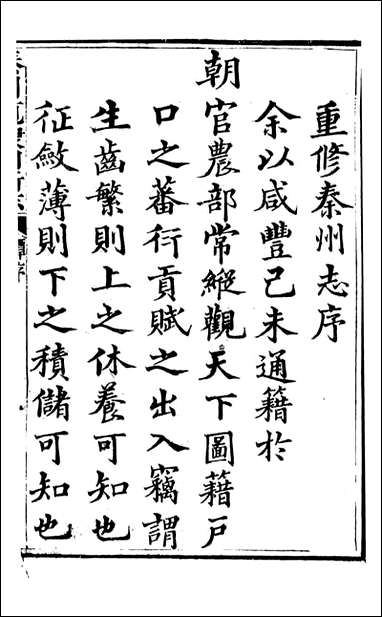 重修秦州志序
余以咸豐己未通籍於
朝官農部常縱觀天下圖藉戸
口之蕃衍貢賦之出入竊謂
生齒繁則上之休養可知也
征斂薄則下之積儲可知也